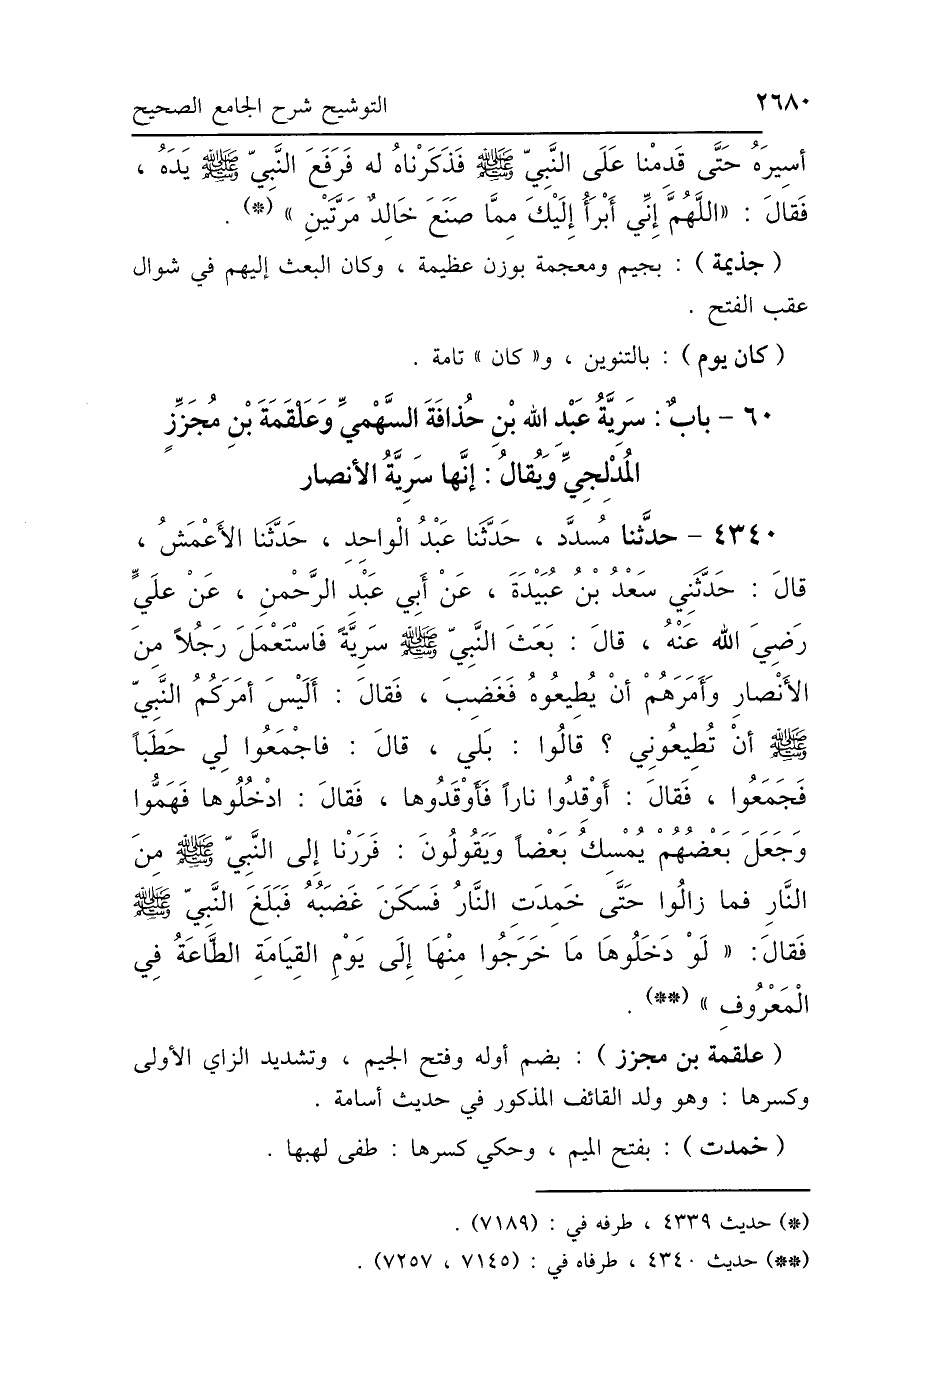 ٢٦٨٠ التوشيح شرح الجامع الصحيح
أسيرَهُ حَتَّى قَدِمْنا عَلَى النَّبِيّ ﷺ فَذَكَرْناهُ له فَرَفَعَ النَّبِيّ ﷺ يَدَهُ ،
فَقالَ : «اللَّهُمَّ إنِّي أَبْرَأُ إلَيْكَ مِمَّا صَنَعَ خَالِدٌ مَرَّتَيْنِ » (*) .
( جذيمة ) : بجيم ومعجمة بوزن عظيمة ، وكان البعث إليهم في شوال
عقب الفتح .
( كان يوم ) : بالتنوين ، و« كان » تامة .
٦٠ - بابٌ : سَرِيَّةُ عَبْدِ الله بْنِ حُذافَةَ السَّهْمِيِّ وَعَلْقَمَةَ بْنِ مُجَزِّزٍ
المُدْلِجِيِّ وَيُقالُ : إنَّها سَرِيَّةُ الأنصار
٤٣٤٠ - حدَّثنا مُسدَّد ، حَدَّثَنا عَبْدُ الْواحِدِ ، حَدَّثَنا الأَعْمَشُ ،
قالَ : حَدَّثَنِي سَعْدُ بْنُ عُبَيْدَةَ ، عَنْ أَبي عَبْدِ الرَّحْمنِ ، عَنْ علَيٍّ
رَضِيَ الله عَنْهُ ، قالَ : بَعَثَ النَّبِيّ ﷺ سَرِيَّةً فَاسْتَعْمَلَ رَجُلاً مِنَ
الأَنْصارِ وَأَمَرَهُمْ أنْ يُطِيعُوهُ فَغَضِبَ ، فَقالَ : أَلَيْسَ أمَرَكُمُ النَّبِيّ
ﷺ أنْ تُطِيعُونِي ؟ قالُوا : بَلي ، قالَ : فاجْمَعُوا لِي حَطَباً
فَجَمَعُوا ، فَقالَ : أَوْقِدُوا ناراً فَأَوْقَدُوها ، فَقالَ : ادْخُلُوها فَهَمُّوا
وَجَعَلَ بَعْضُهُمْ يُمْسِكُ بَعْضاً وَيَقُولُونَ : فَرَرْنا إلى النَّبِيّ ﷺ مِنَ
النَّارِ فما زالُوا حَتَّى خَمِدَتِ النَّارُ فَسَكَنَ غَضَبُهُ فَبَلَغَ النَّبِيّ ﷺ
فَقالَ: « لَوْ دَخَلُوها مَا خَرَجُوا مِنْهَا إلَى يَوْمِ القِيَامَةِ الطَّاعَةُ فِي
الْمَعْرُوفِ » (**) .
( علقمة بن مجزز ) : بضم أوله وفتح الجيم ، وتشديد الزاي الأولى
وكسرها : وهو ولد القائف المذكور في حديث أسامة .
( خمدت ) : بفتح الميم ، وحكي كسرها : طفى لهبها .
(*) حديث ٤٣٣٩ ، طرفه في : (٧١٨٩) .
(**) حديث ٤٣٤٠ ، طرفاه في : (٧١٤٥ ، ٧٢٥٧) .